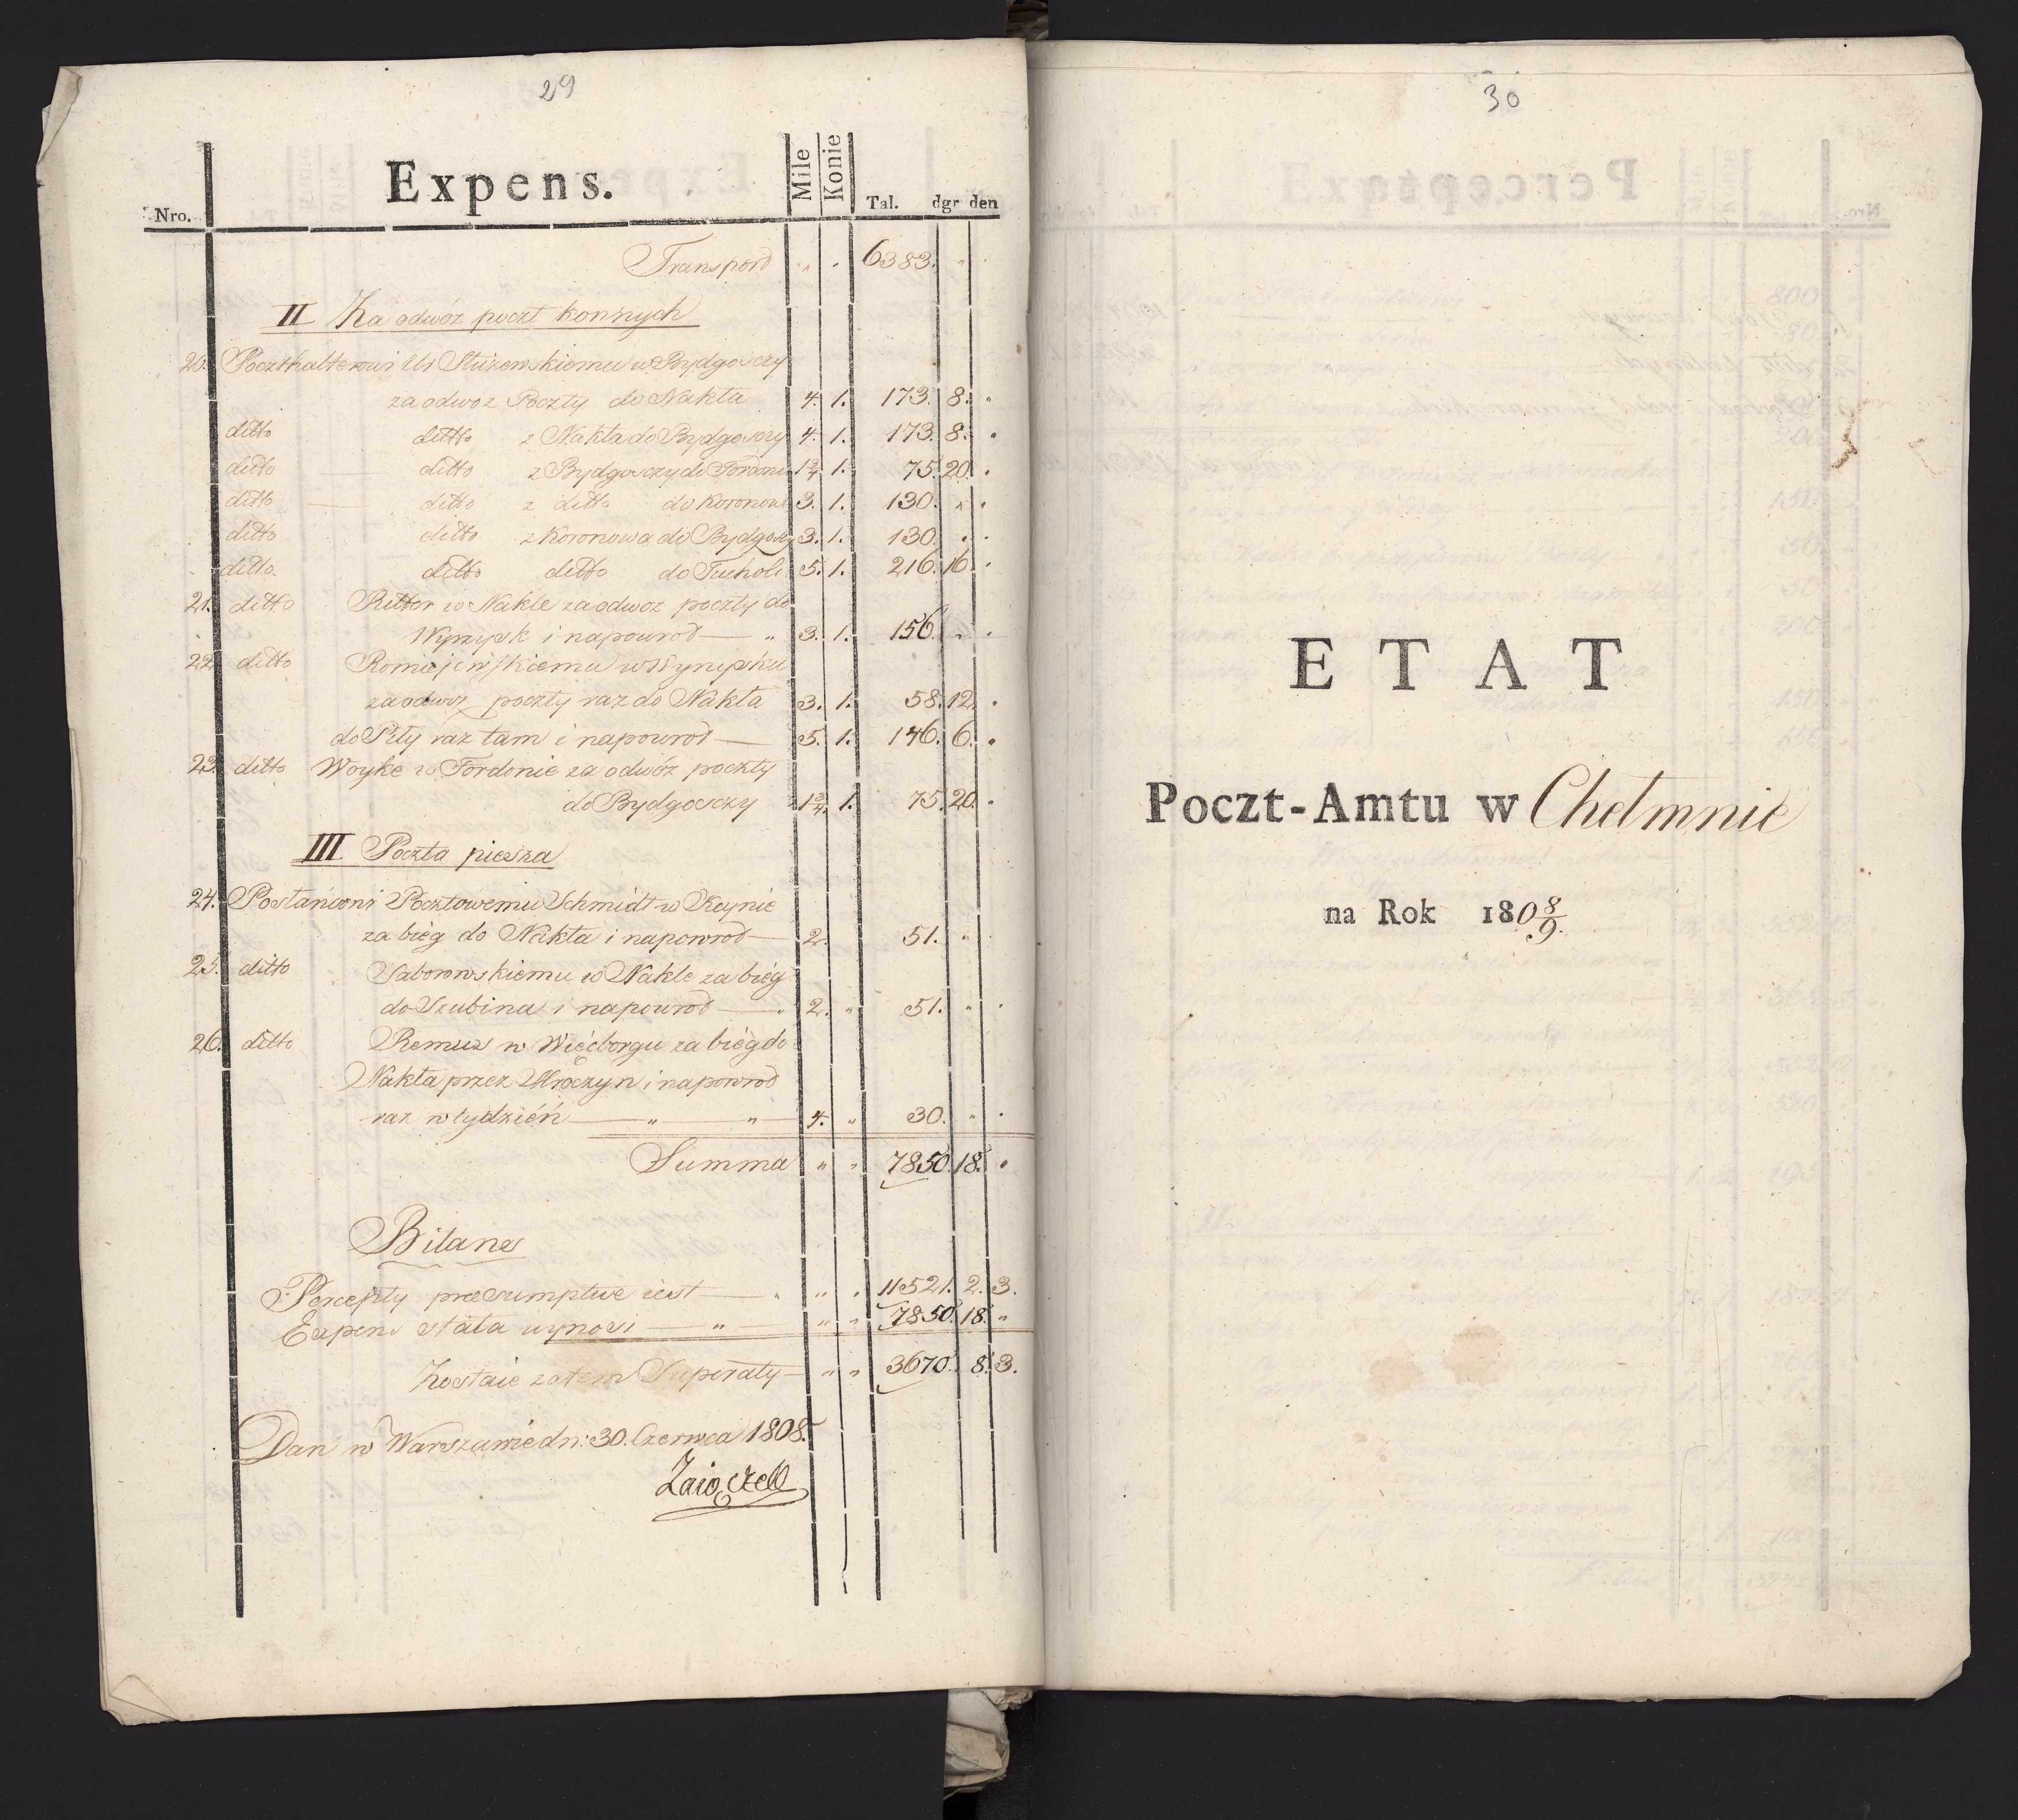 29
Nro. Expens. Mile Konie Tal. dgr den
Transport " " 6383. " "
II Za odwóz poczt konnych
20. Poczthalterowi Ur w Bydgosczy
za odwoz Poczty do Nakła 4. 1. 173. 8. "
ditto ditto z Nakła do Bydgosczy 4. 1. 173. 8. "
ditto ditto z Bydgosczy do Fordonu 1¾ 1. 75. 20. "
ditto ditto z ditto do Koronowa 3. 1. 130. " "
ditto ditto z Koronowa do Bydgosczy 3. 1. 130. " "
ditto ditto ditto do Tucholi 5. 1. 216. 16. "
21. ditto Ritter w Nakle za odwoz poczty do
Wyrzysk i napowrot " 3. 1. 156. " "
22. ditto w
za odwoz poczty raz do Nakła 3. 1. 58. 12. "
do Piły raz tam i napowrot 5. 1. 146. 6. "
23. ditto Woyke w Fordonie za odwóz poczty
do Bydgosczy 1¾ 1. 75. 20. "
III Poczta piesza
24. Posłańcowi Pocztowemu Schmidt w Kcynie
za bieg do Nakła i napowrot 2. 51. "
25. ditto Saborowskiemu w Nakle za bieg
do Szubina i napowrot " 2. " 51. " "
26. ditto Remus w Więcborgu za bieg do
Nakła przez Mroczyn i napowrod
raz w tydzień " " 4. " 30. " "
Summa " " 7850. 18. "
Bilans
Percepty presumptive iest " " " 11521. 2. 3.
Expens stała wynosi " " " 7850. 18. "
Zostaie zatem Superaty " " 3670. 8. 3.
Dan w Warszawie dn: 30. Czerwca 1808.
Zaiączek
30
ETAT
Poczt-Amtu w Chełmnie
na Rok 180 8/9.